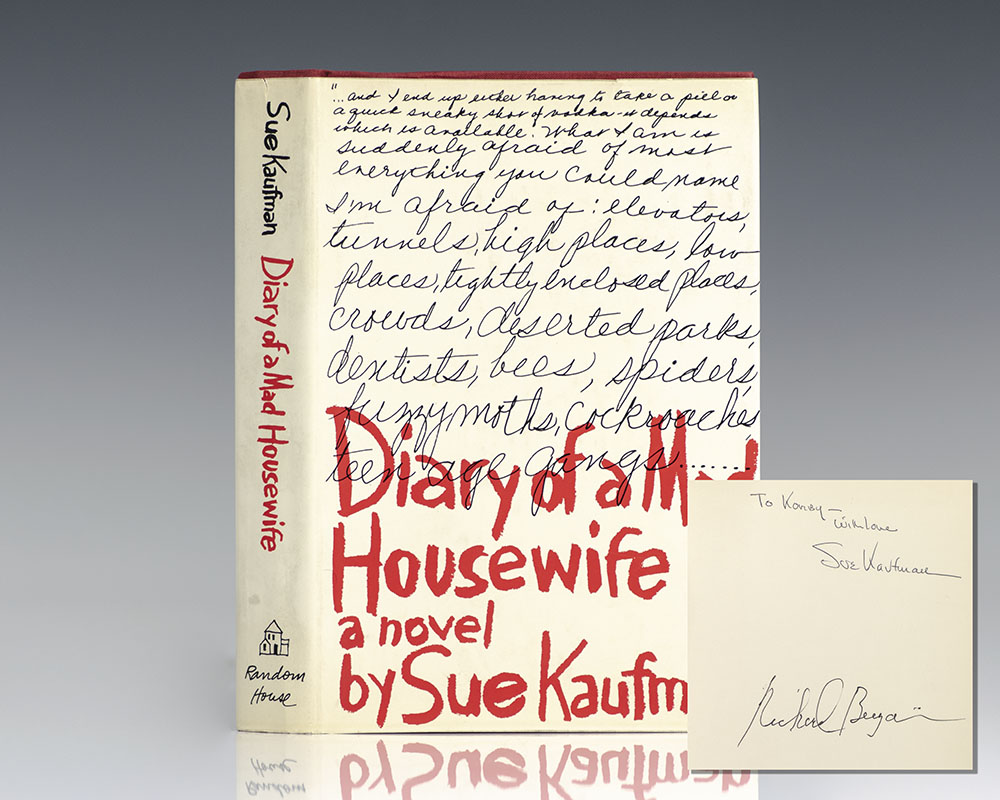 Sue Kaufman Diary of a Mad Housewife
Random
House
"...and I end up either having to take a pill or
a quick sneaky shot of vodka-it depends
which is available. What I am is
suddenly afraid of most
everything you could name
I'm afraid of: elevators,
tunnels, high places, low
places, tightly enclosed places,
crowds, deserted parks,
dentists, bees, spiders,
fuzzy moths, cockroaches,
teen age gangs..........
Diary of a Mad
Housewife
a novel
by Sue Kaufm
To
With love
Sue Kaufman
Richard